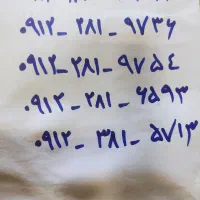 ۰۹۱۲_ ۲۸۱_ ۹۷۳۶
۰۹۱۲_۲۸۱_ ۹۷۵۴
۰۹۱۲_ ۲۸۱_ ۶۵۹۳
۰۹۱۲_ ۳۸۱_ ۵۷۱۳